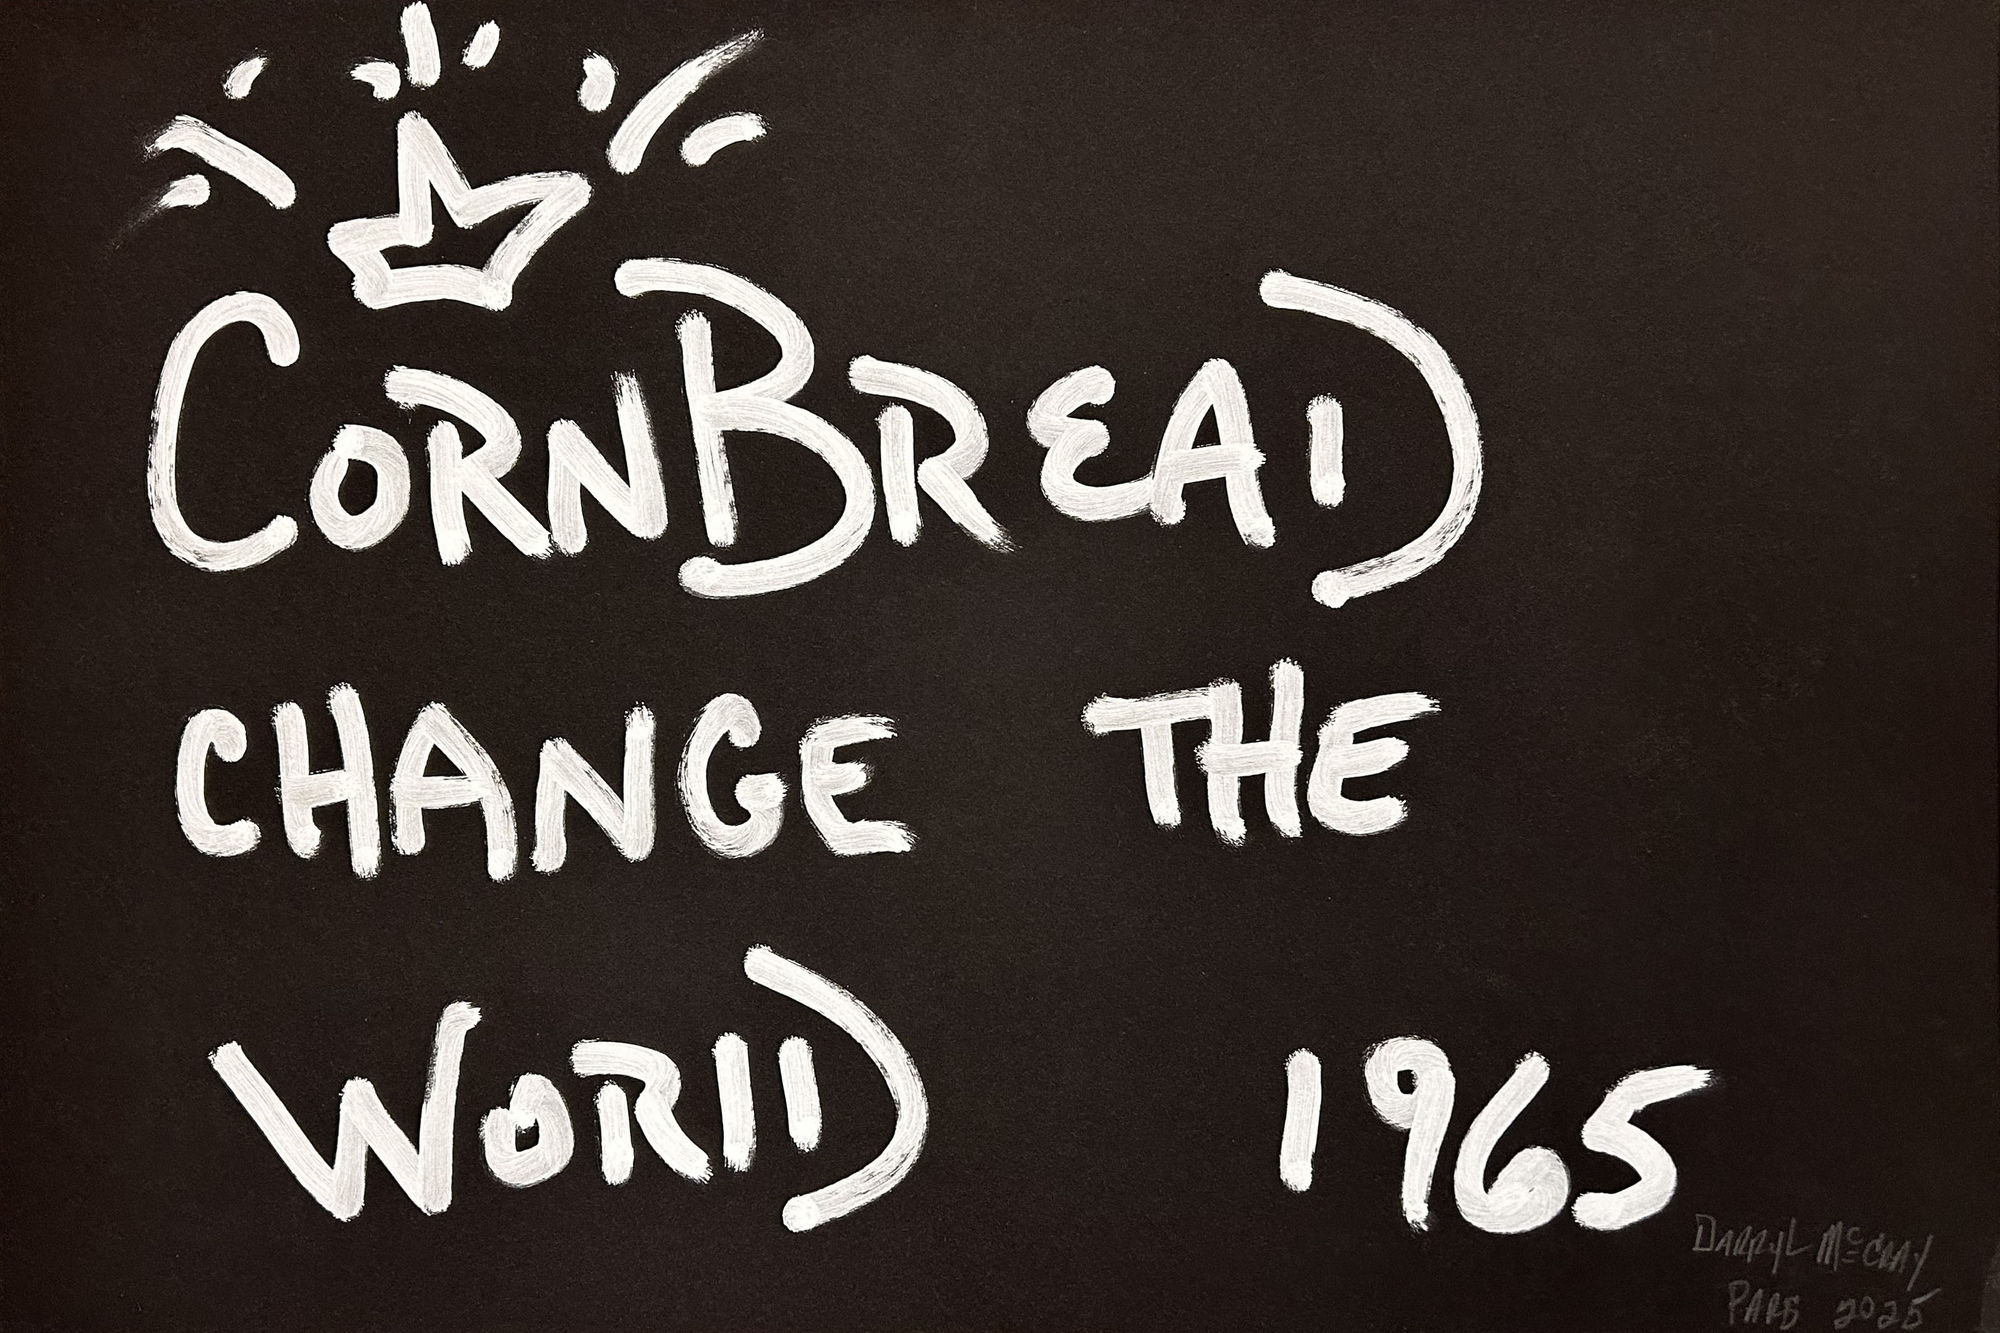 CORNBREAD
CHANGE THE
WORlD 1965
DARRYL McCRAY
PARS 2025